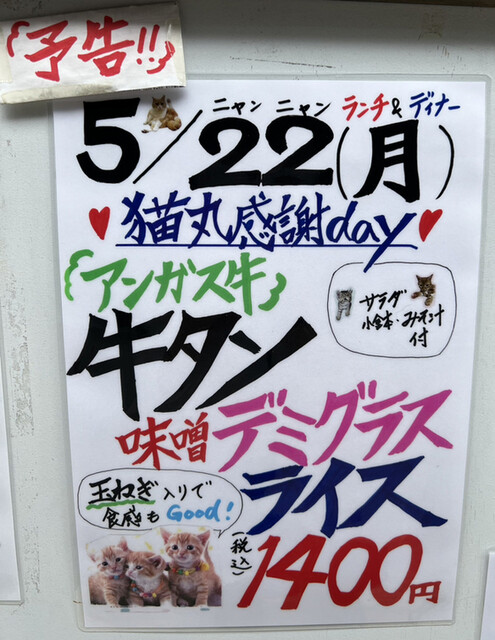 予告!!
ニャン ニャン ランチ&ディナー
5/22(月)
猫丸感謝day
アンガス牛
牛タン
サラダ
小鉢・みそ汁
付
味噌デミグラス
ライス
玉ねぎ入りで
食感も Good!
(税込)1400円